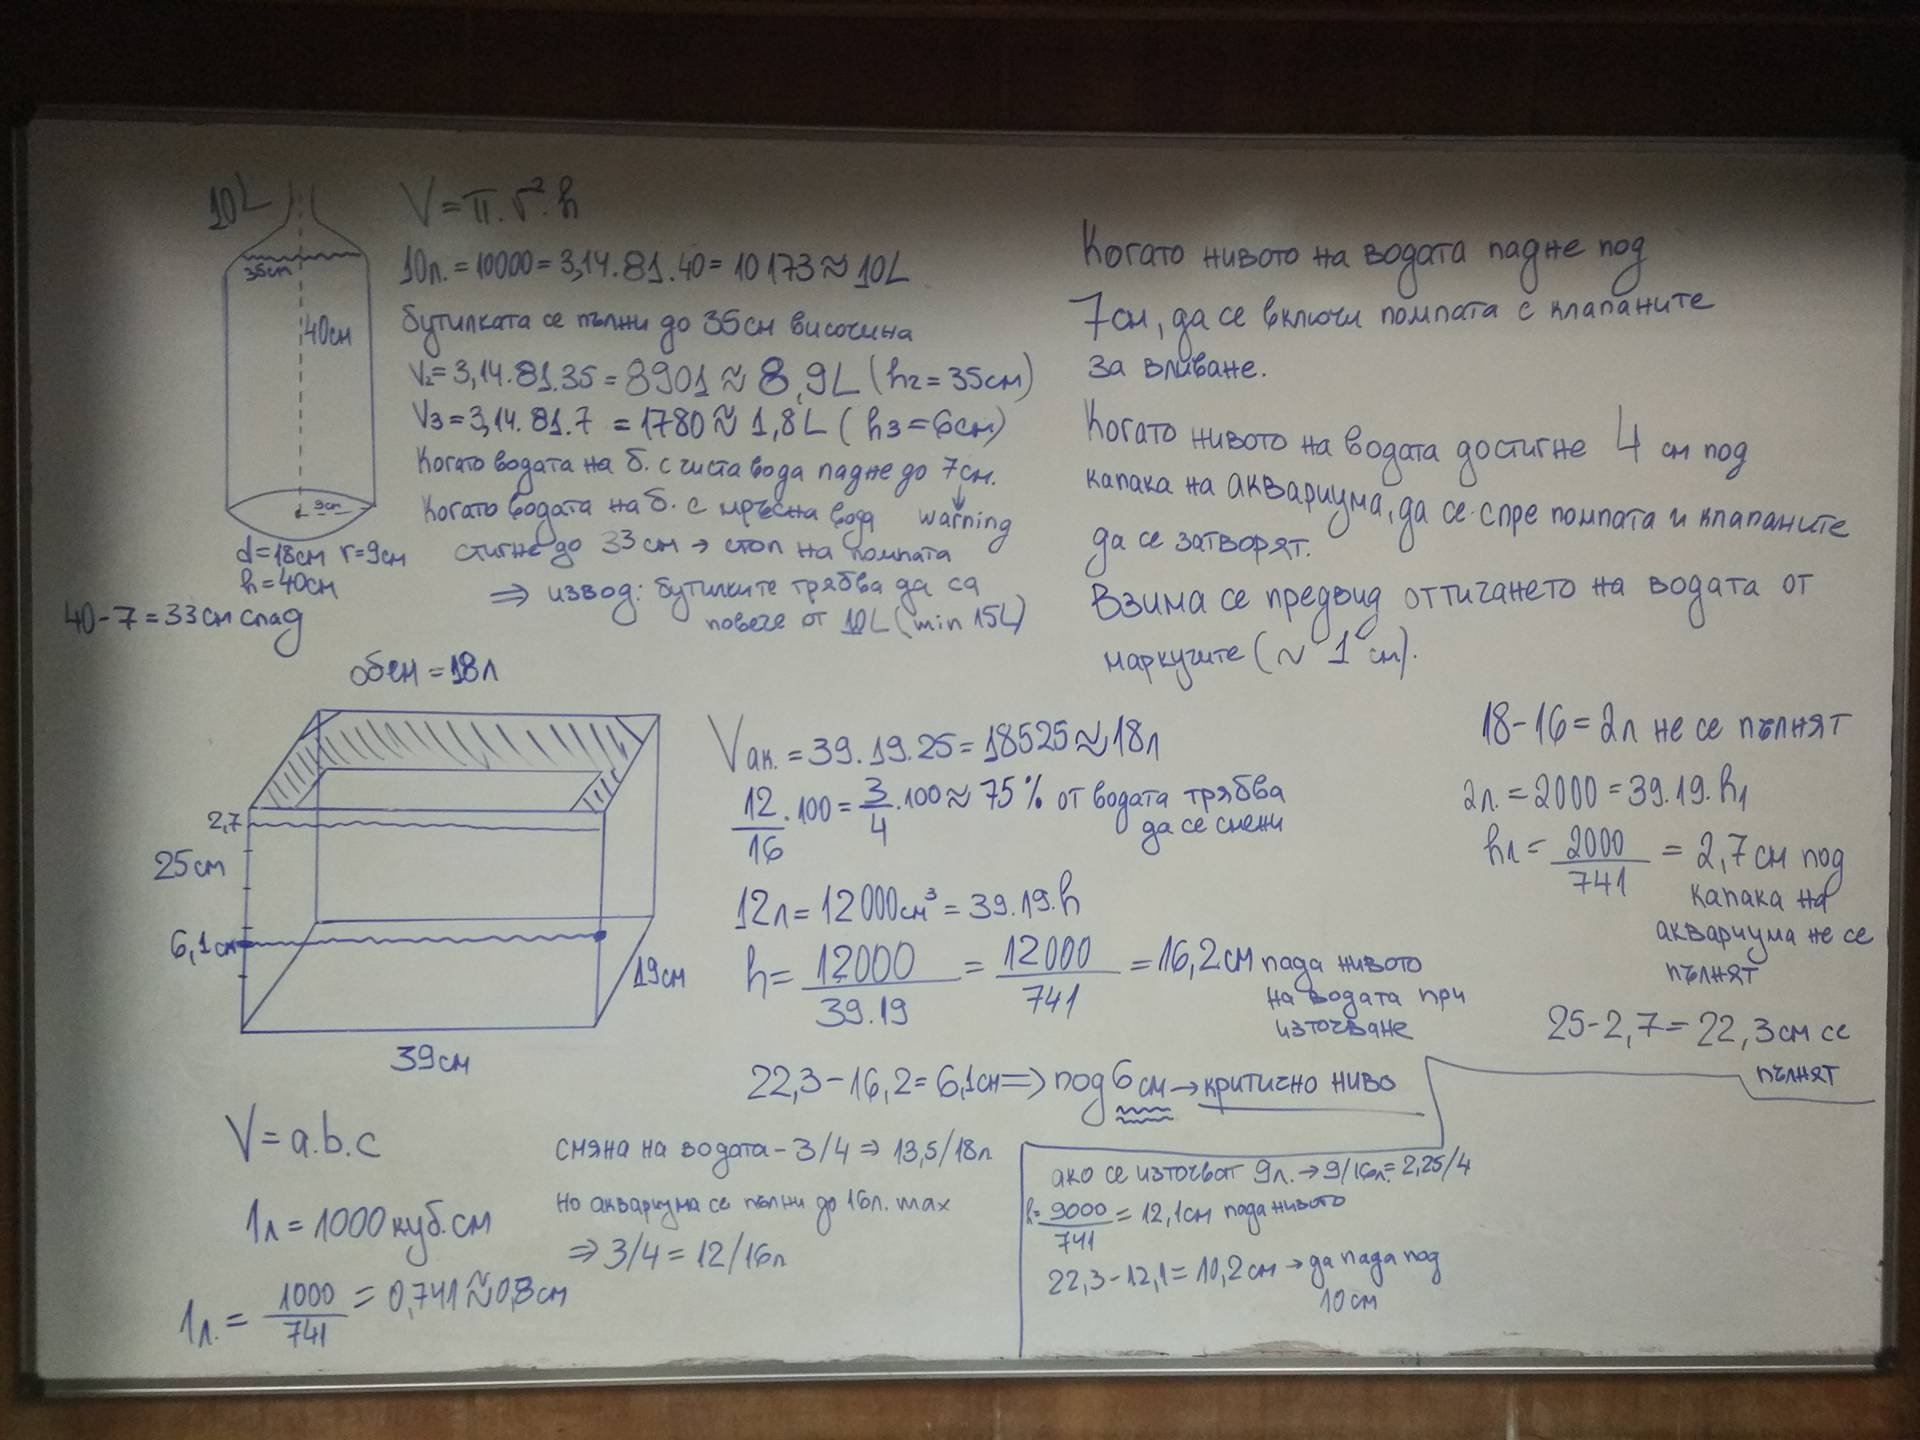 10L
35cm
40см
9см
d=18см r=9см
h=40см
40-7=33см спад
V=π.r².h
10л.=10000=3,14.81.40=10173≈10L
бутилката се пълни до 35см височина
V₂=3,14.81.35=8901≈8,9L (h₂=35см)
V₃=3,14.81.7=1780≈1,8L (h₃=6см)
Когато водата на б. с чиста вода падне до 7см.
↓
Когато водата на б. с мръсна вода warning
стигне до 33см → стоп на помпата
⇒ извод: бутилките трябва да са
повече от 10L (min 15L)
Когато нивото на водата падне под
7см, да се включи помпата с клапаните
за вливане.
Когато нивото на водата достигне 4 см под
капака на аквариума, да се спре помпата и клапаните
да се затворят.
Взима се предвид оттичането на водата от
маркучите (~ 1 см).
обем=18л
2,7
25см
6,1см
19см
39см
Vак.=39.19.25=18525≈18л
12/16.100=3/4.100≈75% от водата трябва
да се смени
12л=12000см³=39.19.h
h=12000/39.19=12000/741=16,2см пада нивото
на водата при
източване
22,3-16,2=6,1см⇒под 6см→критично ниво
18-16=2л не се пълнят
2л.=2000=39.19.h₁
h₁=2000/741=2,7см под
капака на
аквариума не се
пълнят
25-2,7=22,3см се
пълнят
V=a.b.c
1л=1000куб.см
1л.=1000/741=0,741≈0,8см
смяна на водата-3/4⇒13,5/18л
но аквариума се пълни до 16л. max
⇒3/4=12/16л
ако се източват 9л.→9/16л.=2,25/4
h=9000/741=12,1см пада нивото
22,3-12,1=10,2см→да пада под
10см